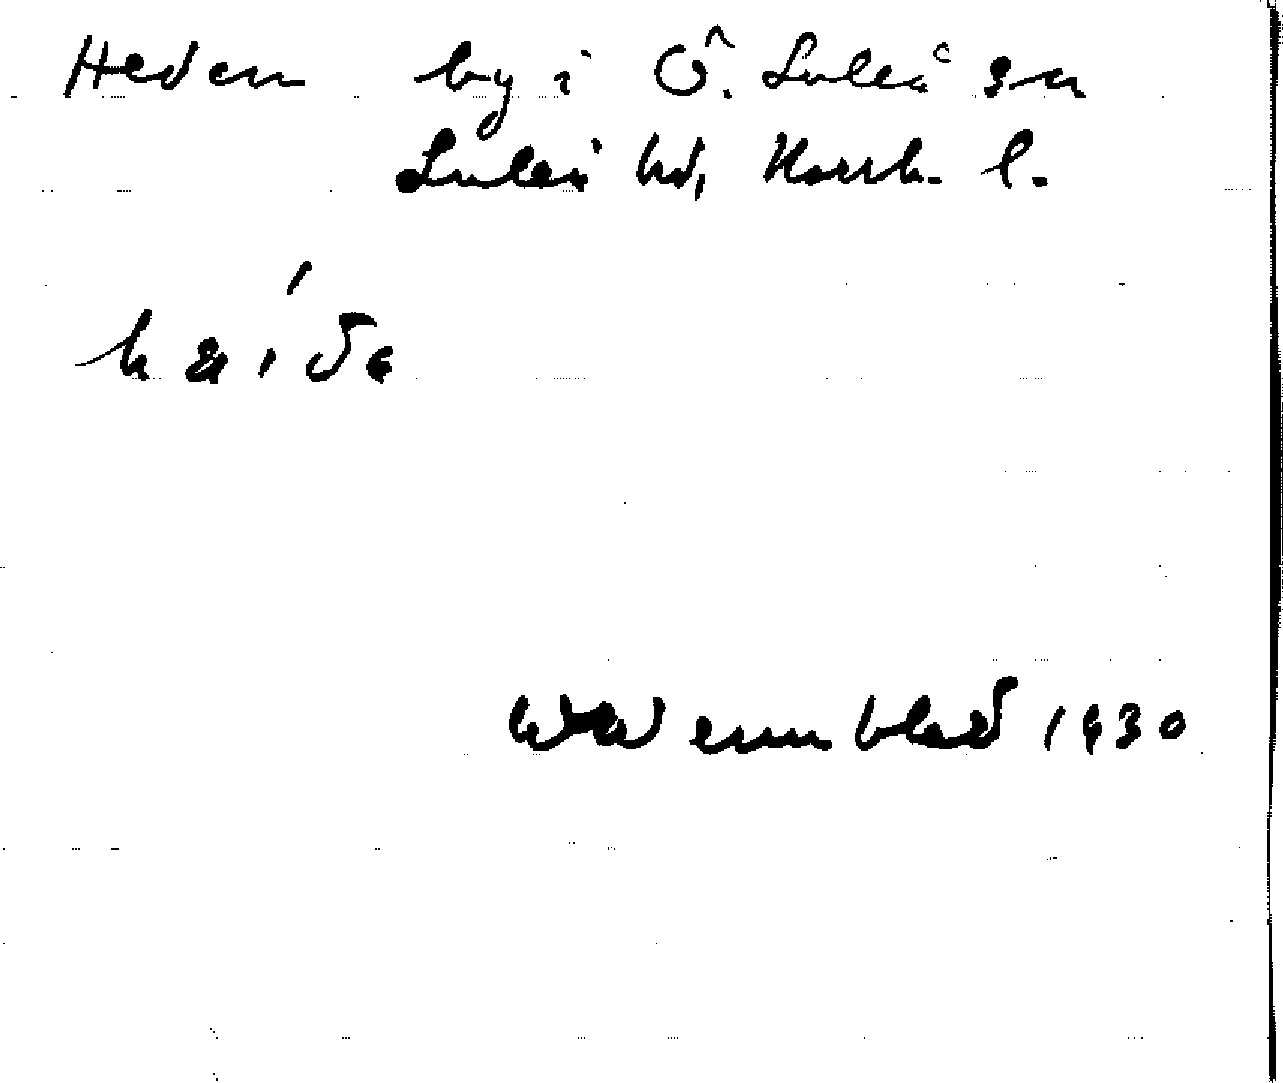 Heden by i Ö. Luleå sn
Luleå hd, Norrb. l.
1930